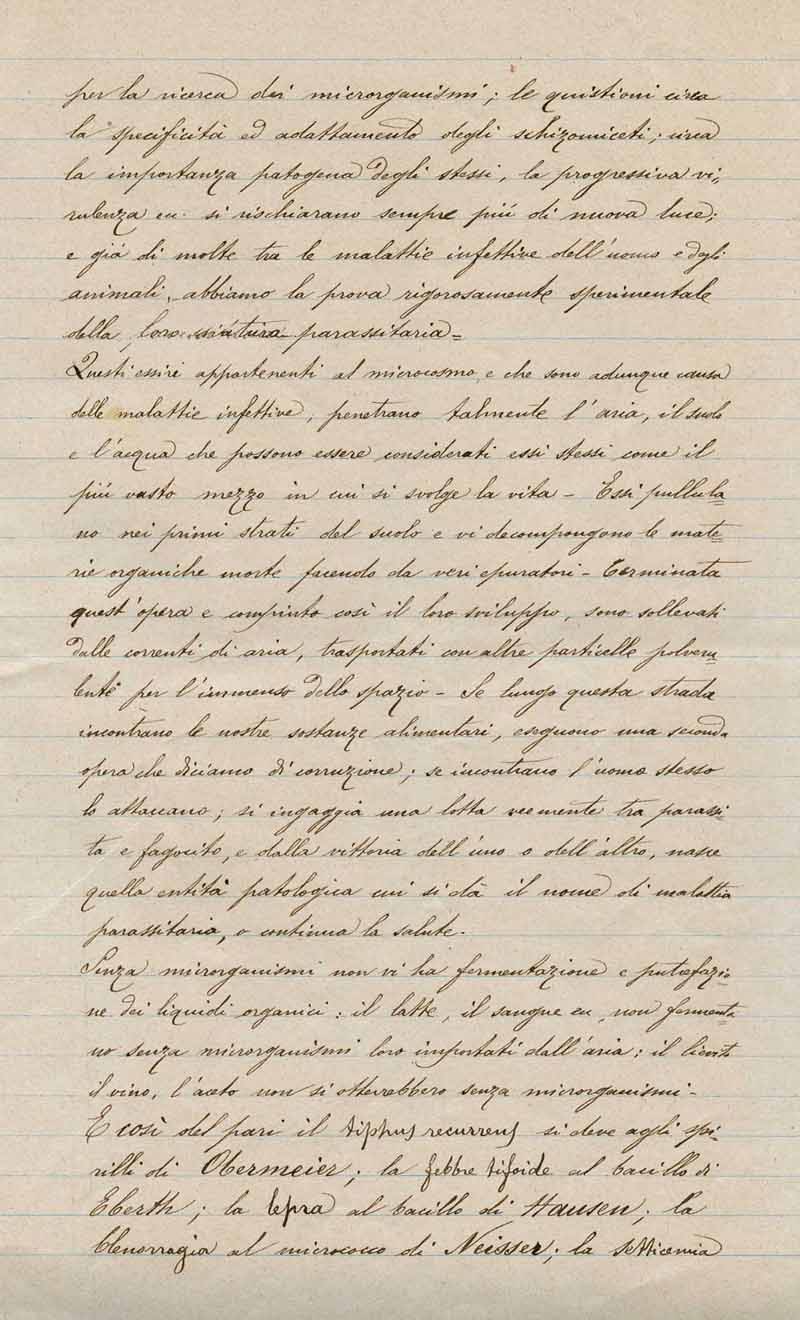 per la ricerca dei microrganismi; le quistioni circa
la specificità ed adattamento degli schizomiceti; circa
la importanza patogena degli stessi, la progressiva vi=
rulenza ecc. si rischiarano sempre più di nuova luce;
e già di molte tra le malattie infettive dell'uomo e degli
animali, abbiamo la prova rigorosamente sperimentale
della loro natura parassitaria=
Questi esseri appartenenti al microcosmo e che sono adunque causa
delle malattie infettive, penetrano talmente l'aria, il suolo
e l'acqua che possono essere considerati essi stessi come il
più vasto mezzo in cui si svolge la vita – Essi pullula=
no nei primi strati del suolo e vi decompongono le mate=
rie organiche morte facendo da veri epuratori – Terminata
quest'opera e compiuto così il loro sviluppo, sono sollevati
dalle correnti di aria, trasportati con altre particelle polveru=
lente per l'immenso dello spazio – Se lungo questa strada
incontrano le nostre sostanze alimentari, eseguono una seconda
opera che diciamo di corruzione; se incontrano l'uomo stesso
lo attaccano; si ingaggia una lotta veemente tra parassi=
ta e fagocito, e dalla vittoria dell'uno o dell'altro, nasce
quella entità patologica cui si dà il nome di malattia
parassitaria, o continua la salute.
Senza microrganismi non vi ha fermentazione e putrefazio=
ne dei liquidi organici: il latte, il sangue ecc, non fermenta=
no senza microrganismi loro importati dall'aria; il lievito
il vino, l'aceto non si otterrebbero senza microrganismi –
E così del pari il tiphus recurrens si deve agli spi=
rilli di Obermeier; la febbre tifoide al bacillo di
Eberth; la lepra al bacillo di Hausen; la
blenorragia al micrococco di Neisser; la setticemia